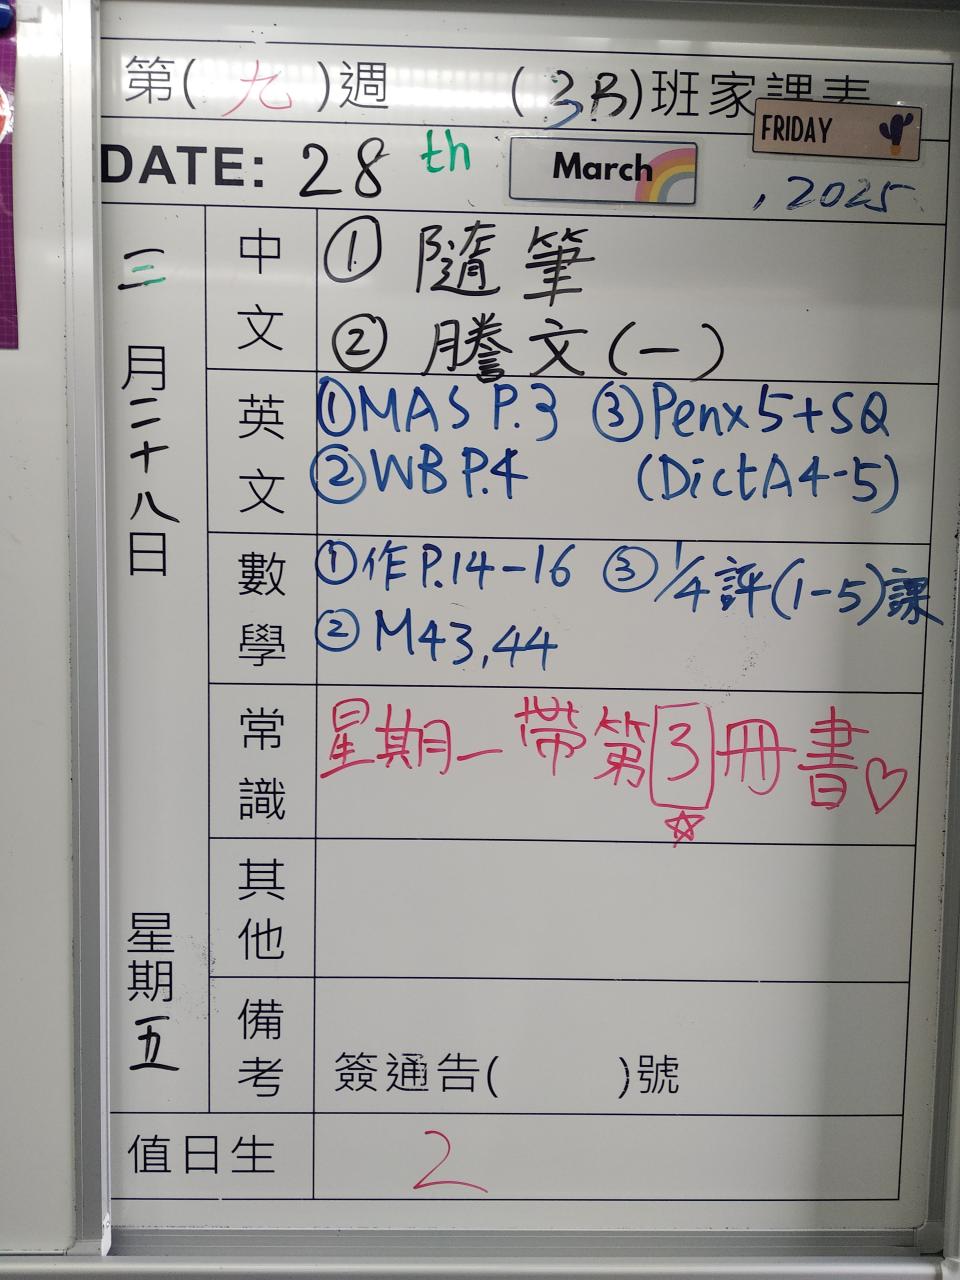 第(九)週 (3B)班家課表
FRIDAY
DATE: 28th March , 2025
三月二十八日 星期五
中文
① 隨筆
② 謄文(一)
英文
① MAS P.3 ③ Penx5+SQ
② WB P.4 (DictA4-5)
數學
① 作P.14-16 ③ 1/4評(1-5)課
② M43,44
常識
星期一帶第3冊書♡
☆
其他
備考
簽通告( )號
值日生 2